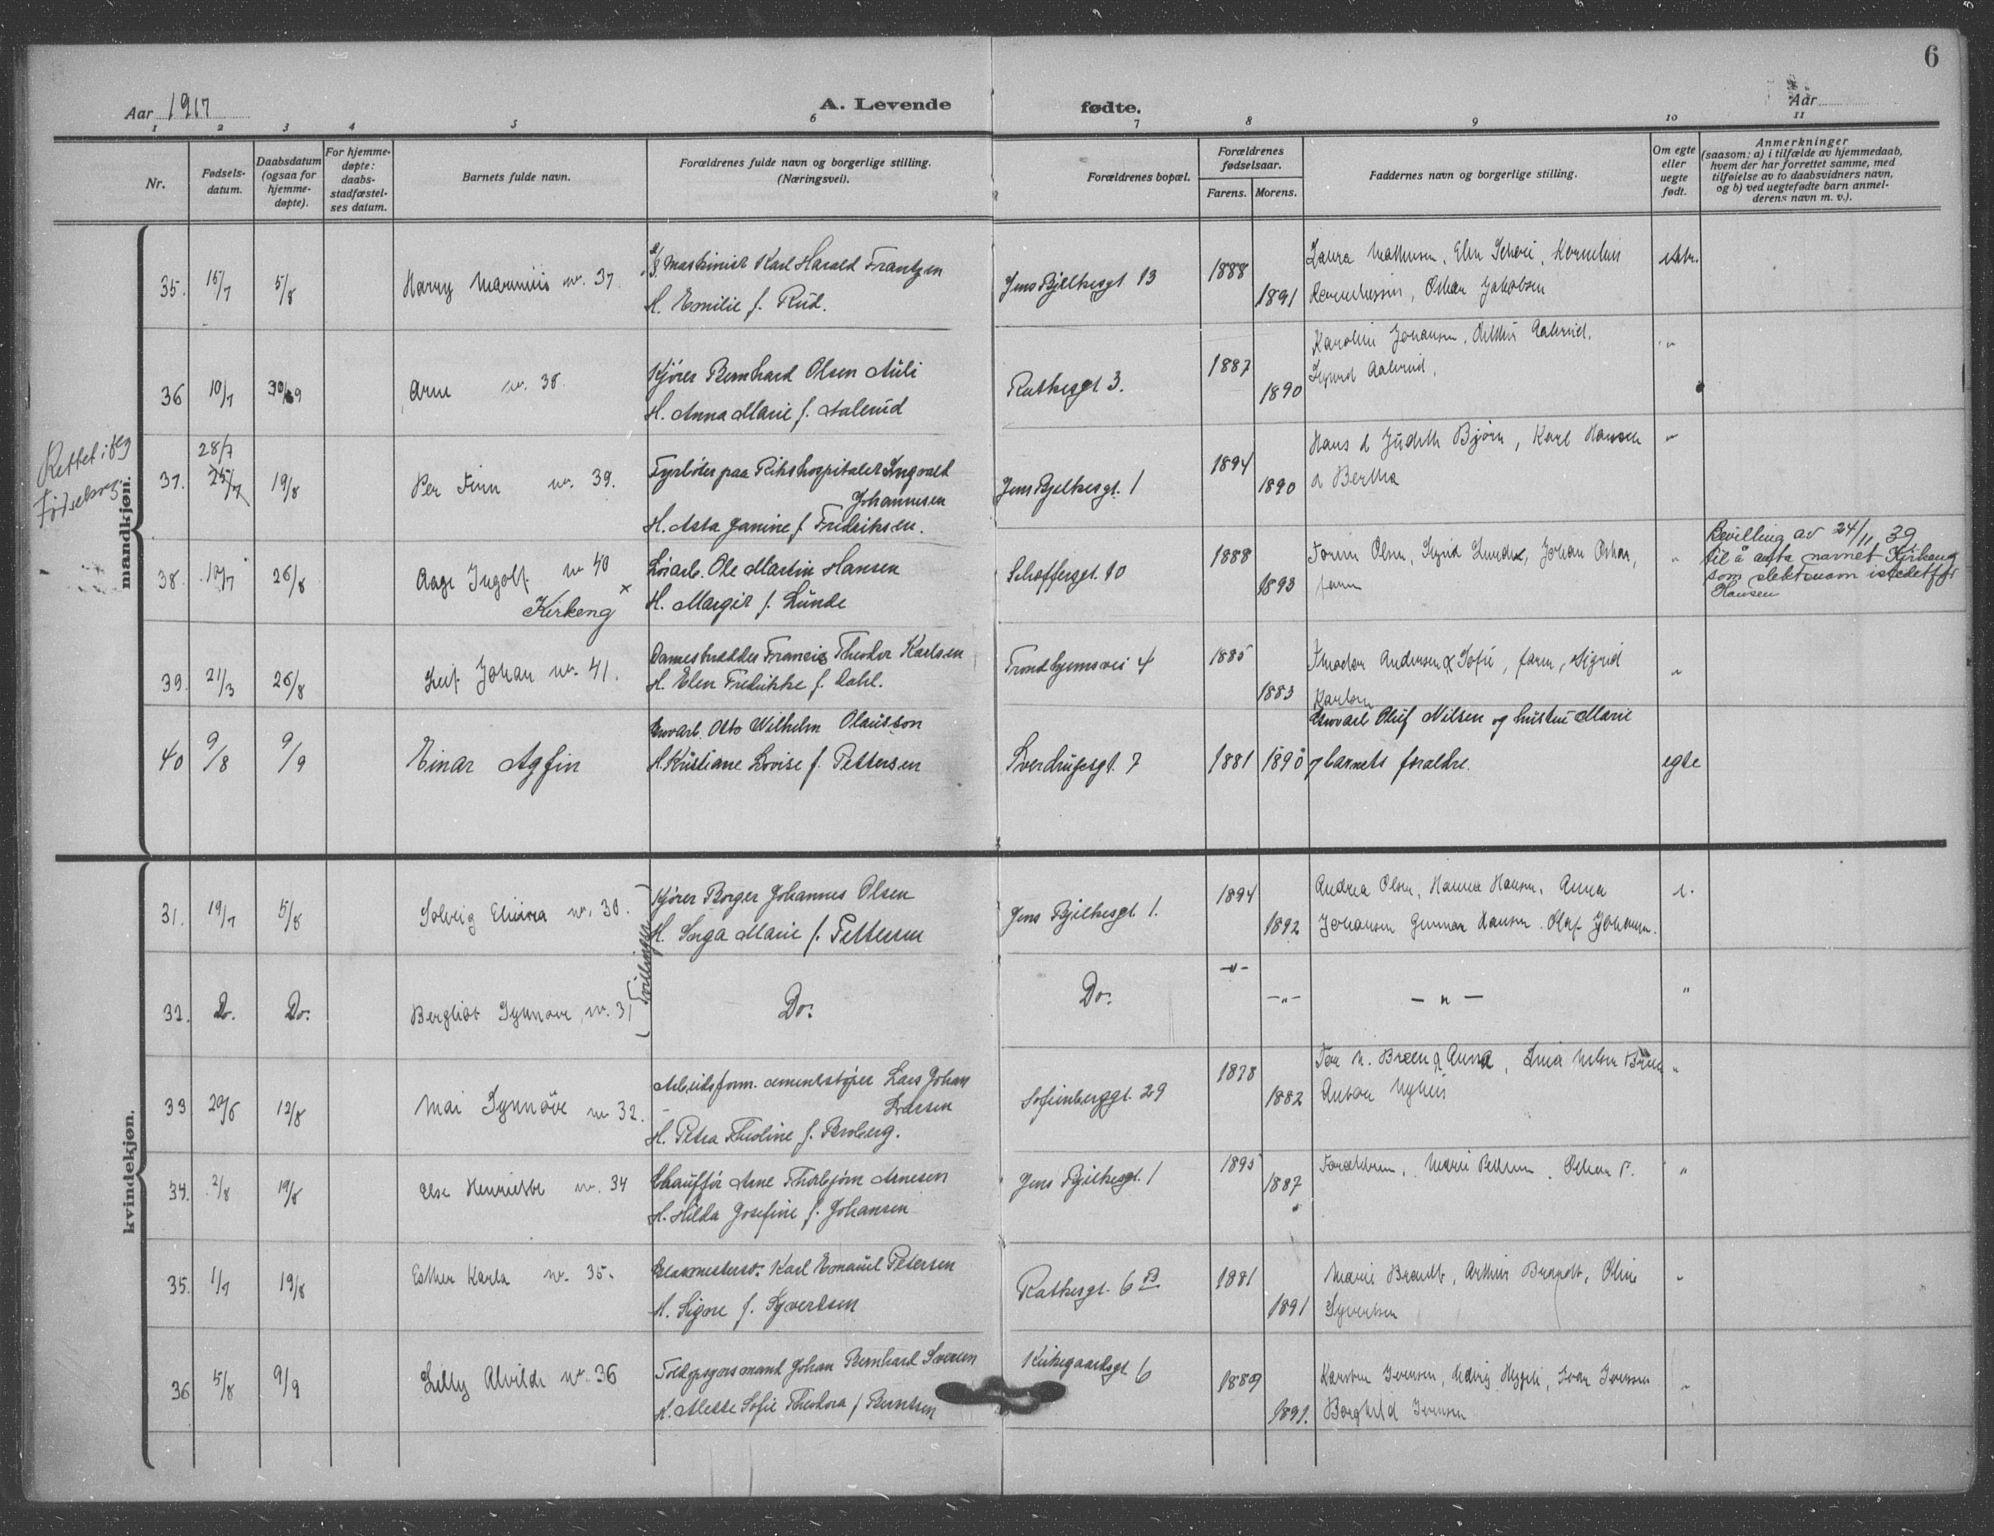 6
Aar 1917
A. Levende fødte.
Aar
1 2 3 4 5 6 7 8 9 10 11
Nr.
Fødsels-
datum.
Daabsdatum
(ogsaa for
hjemme-
døpte).
For hjemme-
døpte:
daabs-
stadfæstel-
ses datum.
Barnets fulde navn.
Forældrenes fulde navn og borgerlige stilling.
(Næringsvei).
Forældrenes bopæl.
Forældrenes
fødselsaar.
Farens. Morens.
Faddernes navn og borgerlige stilling.
Om egte
eller
uegte
født.
Anmerkninger
(saasom: a) i tilfælde av hjemmedaab,
hvem der har forrettet samme, med
tilføielse av to daabsvidners navn,
og b) ved uegtefødte barn anmel-
derens navn m. v.).
mandkjøn.
35. 15/7 5/8 Harry nr. 37 Maskinist Karl Harald Frantzen
H. Emilie f. Rud.
Jens Bjelkesgt 13 1888 1891
Laura Mathisen, Oskar Jakobsen
36 10/7 30/9 Arne nr. 38. Kjører Bernhard Olsen Auli
H. Anna Marie f. Aalerud
Rathkesgt 3. 1887 1890
Karoline Johansen,
Sigurd Aalerud.
"
Rettet i flg
Fødselsreg.
37. 28/7 25/7 19/8 Per Finn nr. 39. Fyrbøter paa Rikshospitalet Ingvald
Johannesen
H. Asta Janine f. Fredriksen.
Jens Bjelkesgt. 1 1894 1890
Hans & Judith Bjørn, Karl Hansen
& Bertha
"
38. 12/7 26/8 Aage Ingolf nr 40
Kirkeng x
Ole Martin Hansen
H. Margit f. Lunde
Schøffersgt. 10 1888 1893
Olsen, Sigrid Lunde, Johan Oskar,
faren
"
Bevilling av 24/11 39
til å anta navnet Kirkeng
som slektsnavn istedetfor
Hansen
39. 21/3 26/8 Leif Johan nr. 41. Francis Theodor Karlsen
H. Elen Fredrikke f. Dahl.
Trondhjemsvei 4 1885 1883
Andersen & Sofie, faren, Sigrid
Karlsen
"
40 9/8 9/9 Einar Agfin Otto Wilhelm Olausson
H. Kristiane Lovise f. Pettersen
Sverdrupsgt. 7 1881 1890
Oluf Nilsen og hustru Marie
barnets forældre.
egte
kvindekjøn.
31. 19/7 5/8 Solveig Elvira nr. 30. Kjører Borger Johannes Olsen
H. Inga Marie f. Pettersen
Tvillinger
Jens Bjelkesgt 1. 1894 1892
Andrea Olsen, Hanna Hansen, Anna
Johansen Gunnar Hansen. Olaf Johansen.
32. Do. Do. Bergliot Synnøve, nr. 31 Do. Do. -"- -"- - " - "
33 29/6 12/8 Mai Synnöve nr 32. Arbeidsform. cementstøper Lars Johan
Larsen
H. Petra Theoline f. Broberg.
Sofienberggt. 29 1878 1882
"
34. 2/8 19/8 Else Henriette nr. 34 Chauffør Arne Thorbjørn Arnesen
H. Hilda Josefine f. Johansen
Jens Bjelkesgt. 1 1895 1887
Forældrene,
"
35. 1/7 19/8 Esther Karla nr. 35. Glasmestersv. Karl Emanuel Petersen
H. Signe f. Syvertsen
Rathkesgt. 6 B 1881 1891
Marie Brandt, Arthur Brandt, Oline
Syvertsen
"
36 5/8 9/9 Lilly Alvilde nr. 36 Johan Bernhard Iversen
H. Mette Sofie Theodora f Berntsen
Kirkegaardsgt 6 1889 1891.
Karsten Iversen, Ivar Iversen
Borghild Iversen
"